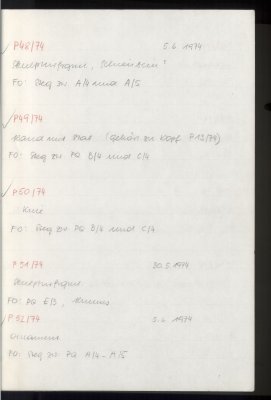 P48/74 5.6.1974
Skulpturfragm., 
FO: Steg zw A/4 und A/5
P49/74
Hand mit Stab (gehört zu Kopf P13/74)
FO: Steg zw PQ B/4 und C/4
P50/74
Knie
FO: Steg zw PQ B/4 und C/4
P51/74 30.5.1974
Skulpturfragm.
FO: PQ E/3,
P52/74 5.6.1974
Ornament
FO: Steg zw PQ A/4-A/5